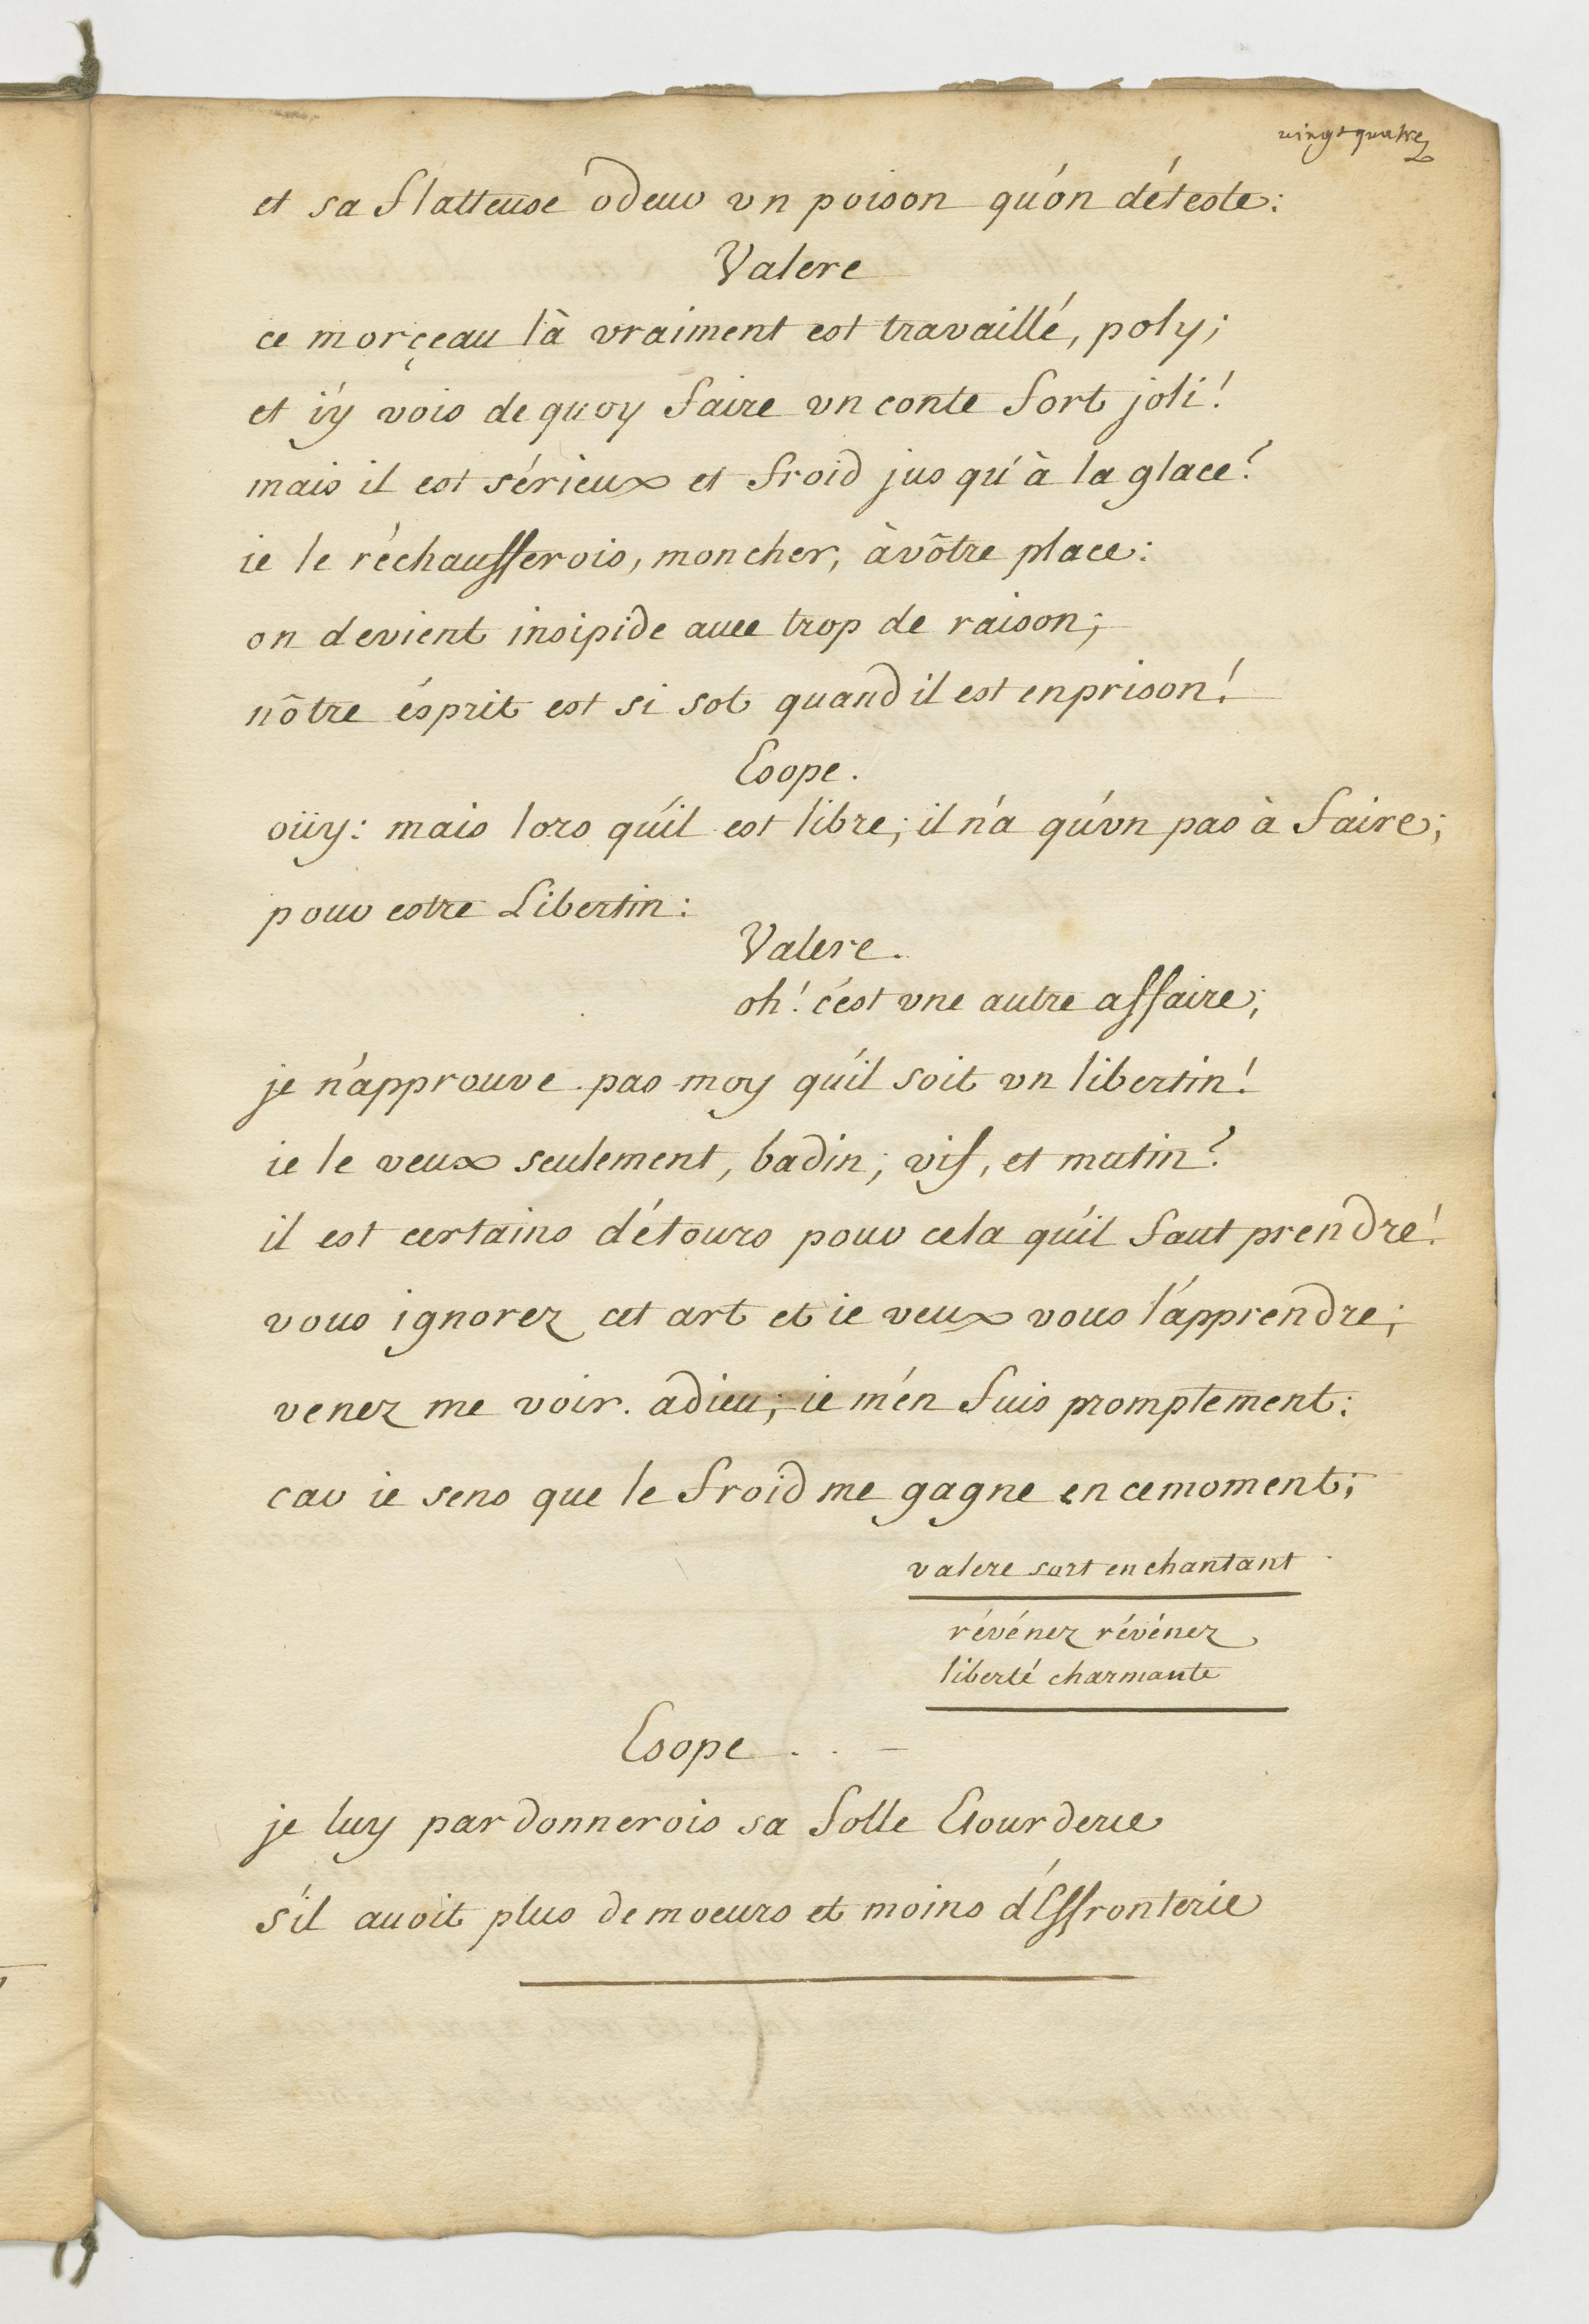 vingt quatre
et sa flatteuse odeur vn poison qu'on déteste:
Valere
ce morçeau là vraiment est travaillé, poly;
et i'y vois de quoy faire vn conte fort joli!
mais il est sérieux et froid jus qu'à la glace?
ie le réchaufferois, mon cher, à vôtre place:
on devient insipide auec trop de raison;
nôtre ésprit est si sot quand il est en prison!
Esope.
oüy: mais lors qu'il est libre; il n'a qu'vn pas à faire;
pour estre Libertin:
Valere.
oh! c'est vne autre affaire;
je n'approuve pas moy qu'il soit vn libertin!
ie le veux seulement, badin; vif, et mutin?
il est certains détours pour cela qu'il faut prendre!
vous ignorez cet art et ie veux vous l'apprendre;
venez me voir. adieu; ie m'en fuis promptement:
car ie sens que le froid me gagne en ce moment;
valere sort en chantant
révénez révénez
liberté charmante
Esope
je luy pardonnerois sa folle Etourderie
s'il auoit plus de moeurs et moins d'Effronterie